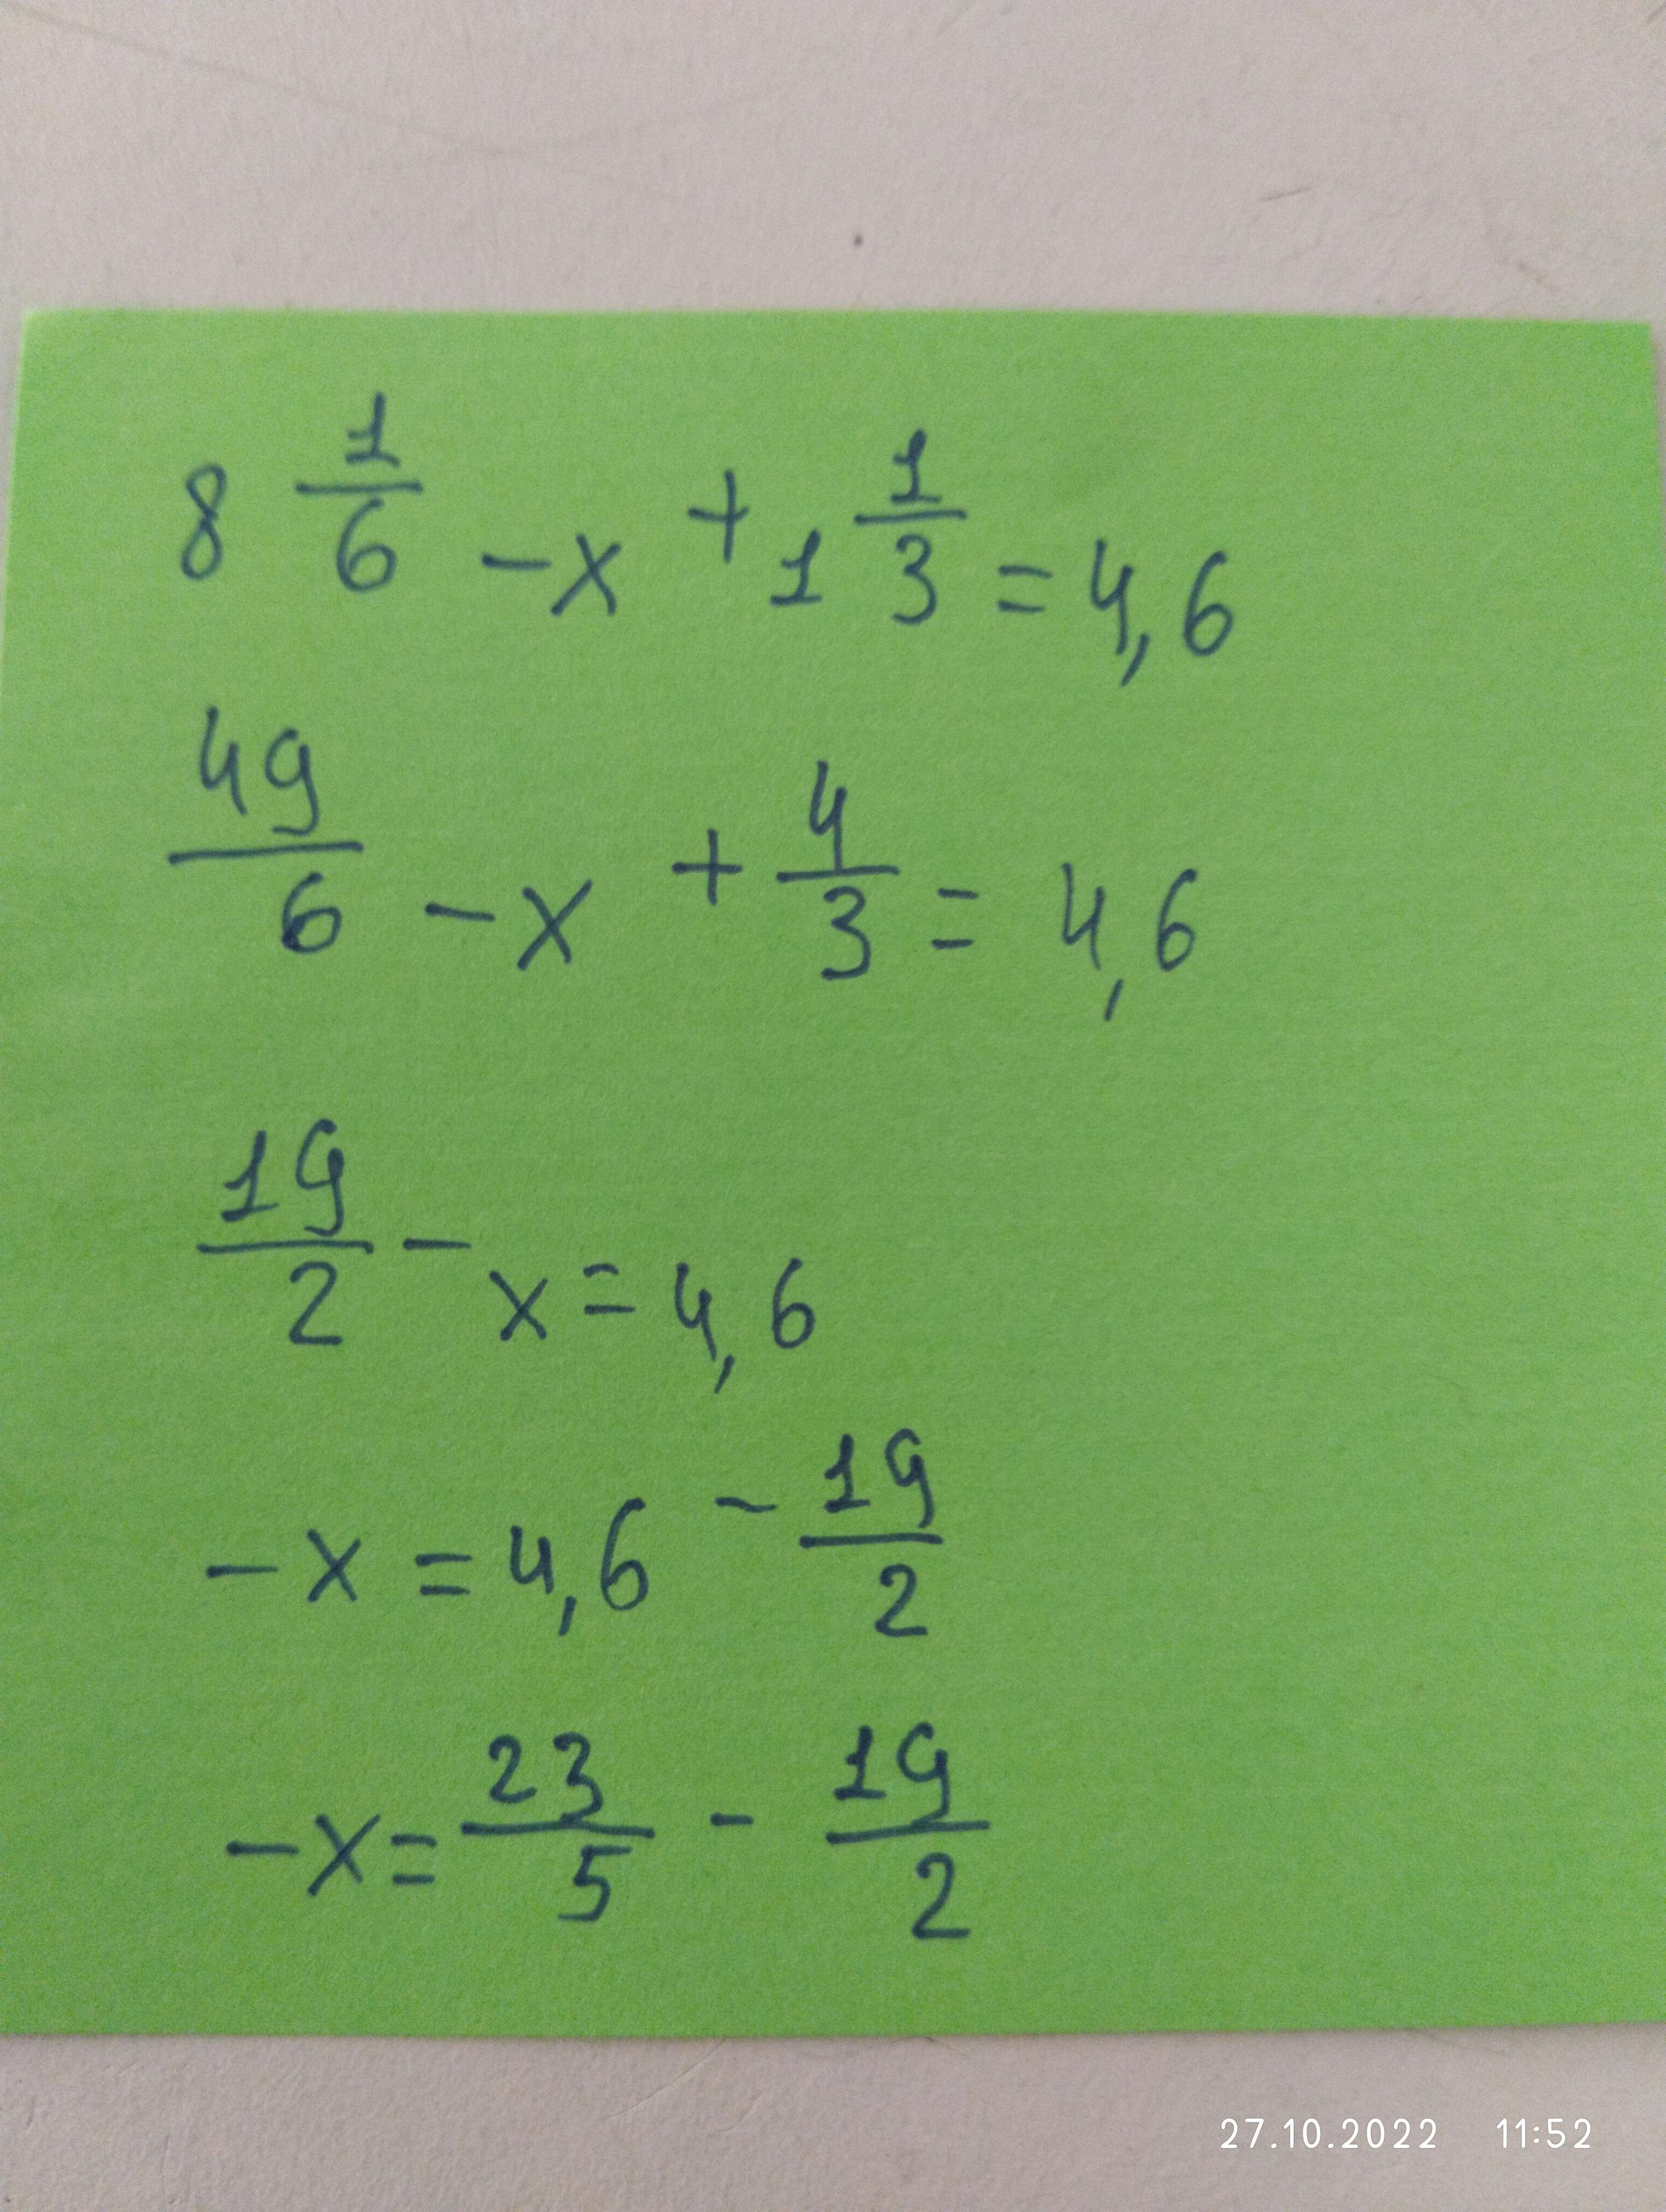 8 1/6 - x + 1 1/3 = 4,6
49/6 - x + 4/3 = 4,6
19/2 - x = 4,6
- x = 4,6 - 19/2
- x = 23/5 - 19/2
27.10.2022 11:52